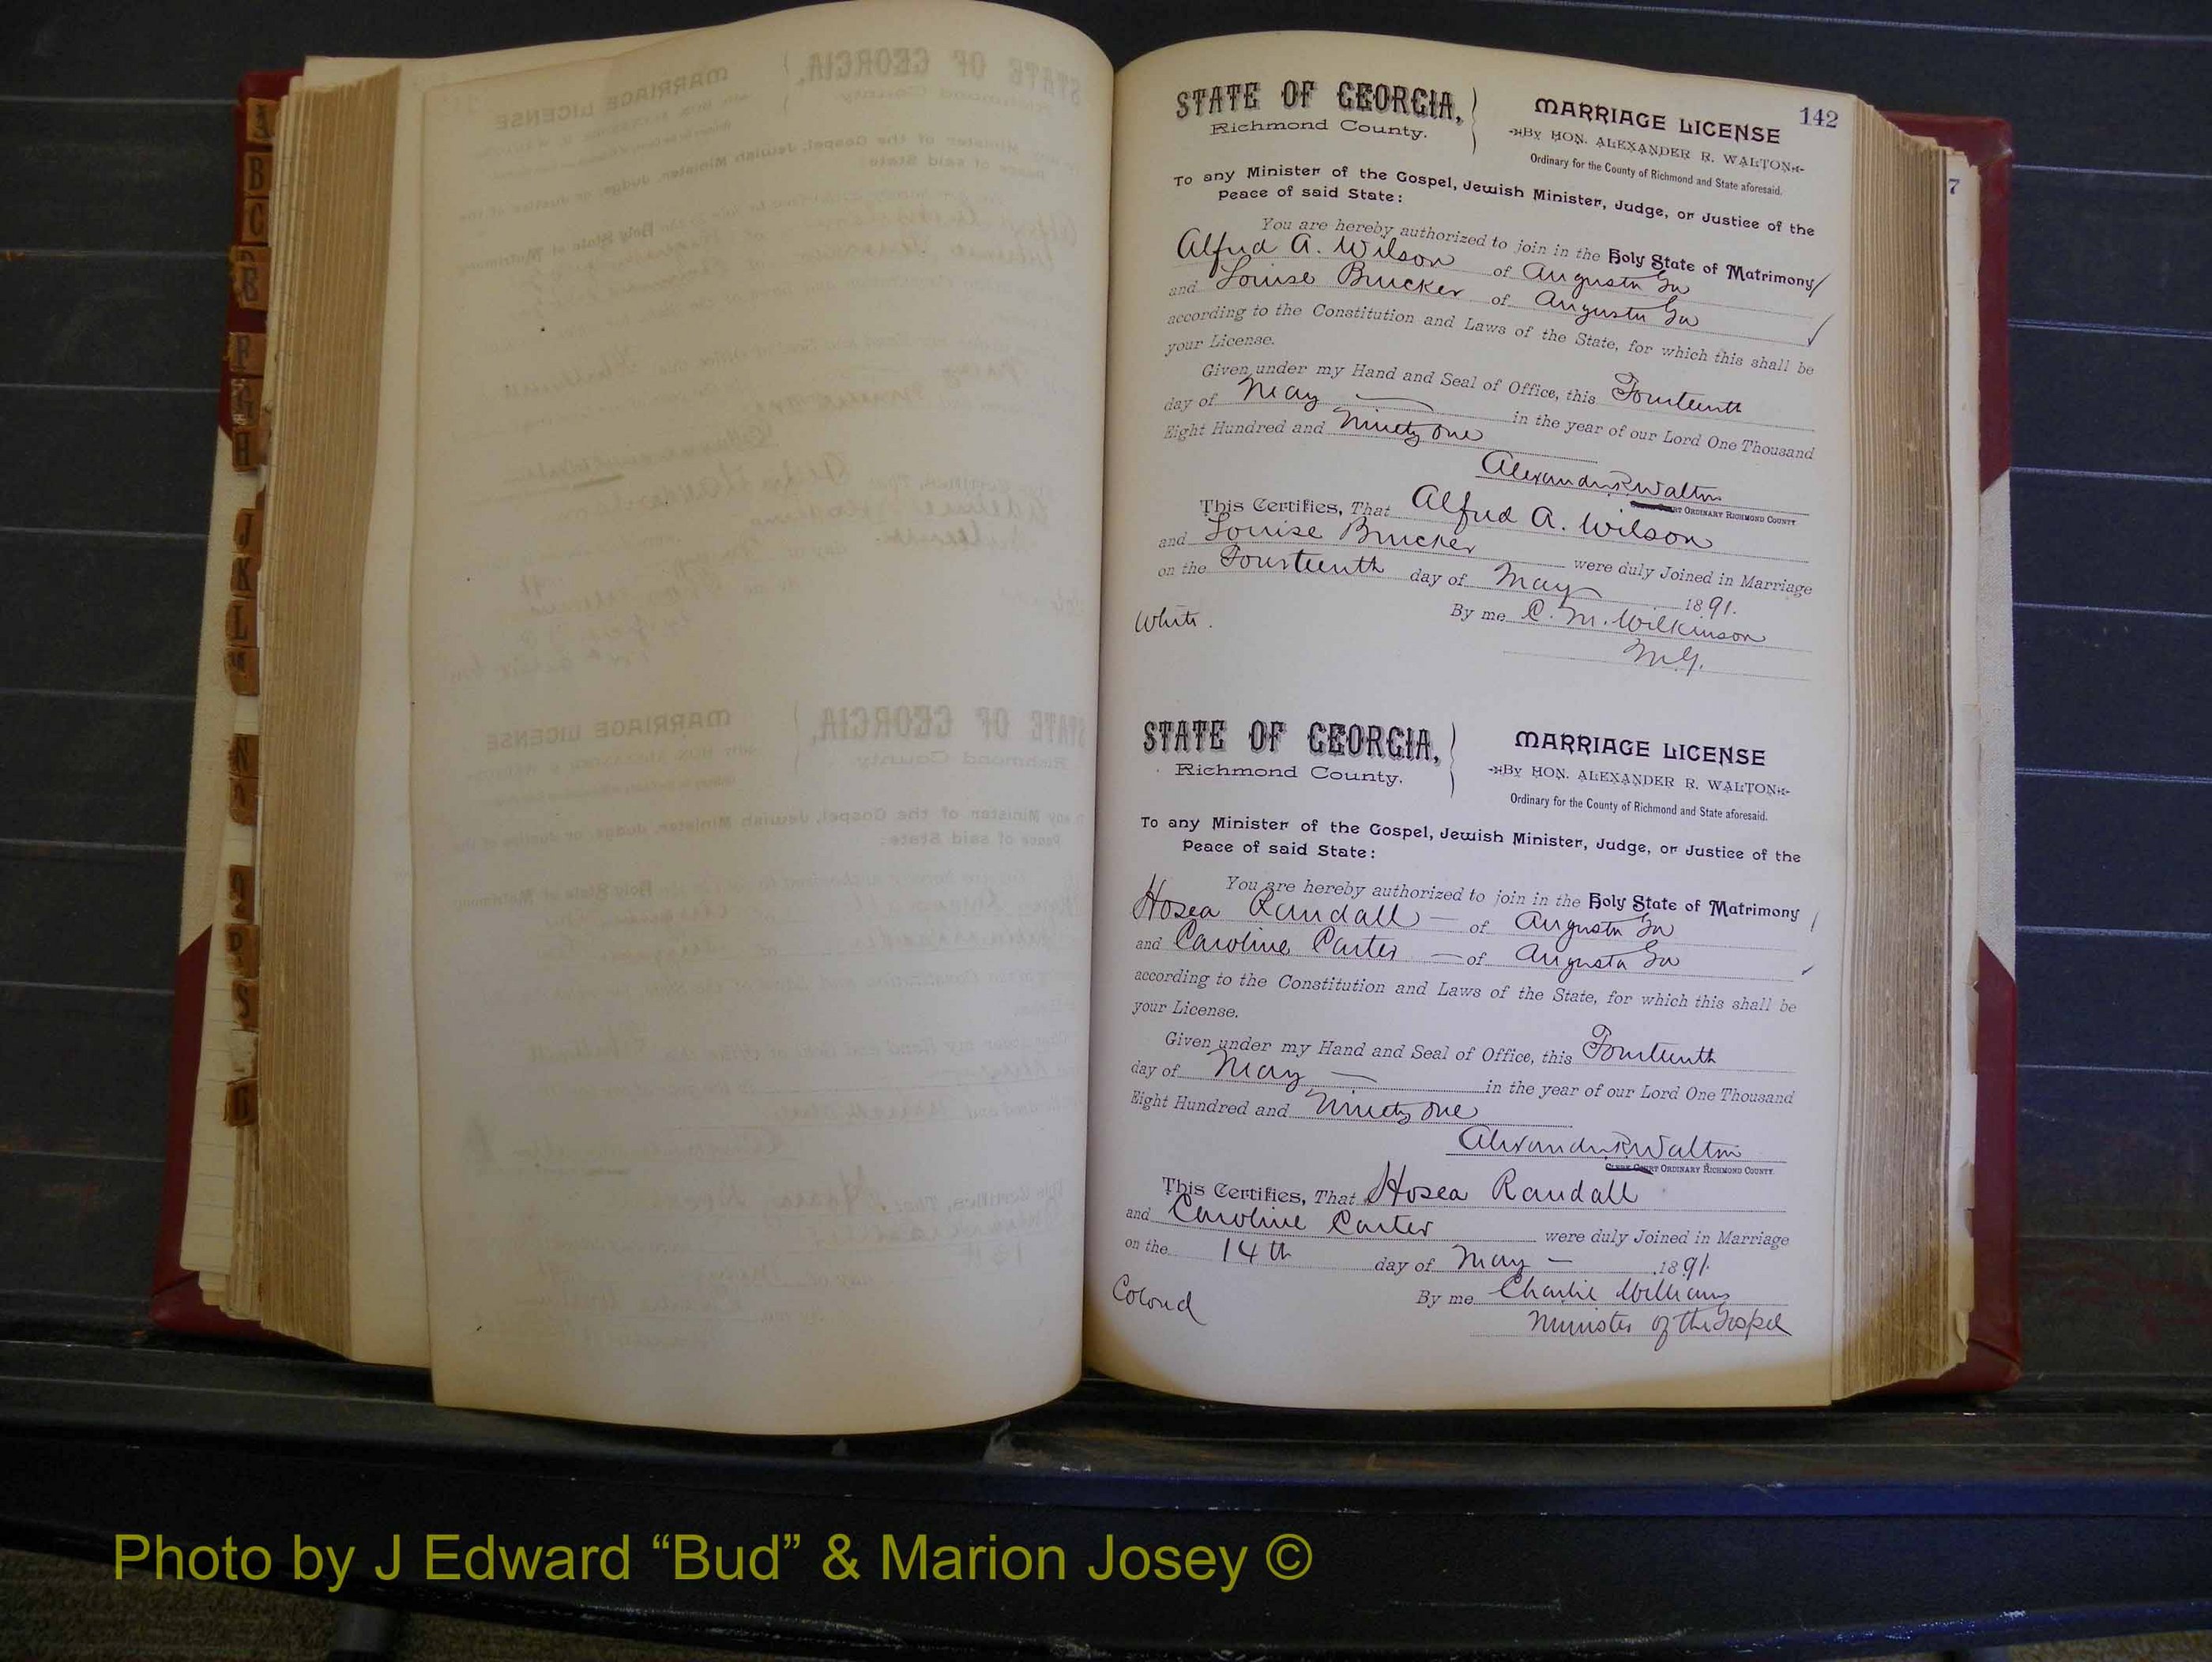 142
STATE OF GEORGIA,
Richmond County.
MARRIAGE LICENSE
BY HON. ALEXANDER R. WALTON
Ordinary for the County of Richmond and State aforesaid.
To any Minister of the Gospel, Jewish Minister, Judge, or Justice of the
Peace of said State:
You are hereby authorized to join in the Holy State of Matrimony
Alfred A. Wilson of Augusta Ga
and Louise Brucker of Augusta Ga
according to the Constitution and Laws of the State, for which this shall be
your License.
Given under my Hand and Seal of Office, this Fourteenth
day of May in the year of our Lord One Thousand
Eight Hundred and Ninety one
Alexander R Walton
ORDINARY RICHMOND COUNTY
This Certifies, That Alfred A. Wilson
and Louise Brucker were duly Joined in Marriage
on the Fourteenth day of May 1891.
White. By me C. M. Wilkinson
M.G.
STATE OF GEORGIA,
Richmond County.
MARRIAGE LICENSE
BY HON. ALEXANDER R. WALTON
Ordinary for the County of Richmond and State aforesaid.
To any Minister of the Gospel, Jewish Minister, Judge, or Justice of the
Peace of said State:
You are hereby authorized to join in the Holy State of Matrimony
Hosea Randall of Augusta Ga
and Caroline Carter of Augusta Ga
according to the Constitution and Laws of the State, for which this shall be
your License.
Given under my Hand and Seal of Office, this Fourteenth
day of May in the year of our Lord One Thousand
Eight Hundred and Ninety one
Alexander R Walton
CLERK COURT ORDINARY RICHMOND COUNTY
This Certifies, That Hosea Randall
and Caroline Carter were duly Joined in Marriage
on the 14th day of May 1891.
Colored By me Charlie Williams
Minister of the Gospel
7
A
B
C
F
H
J
K
L
M
N
P
S
Photo by J Edward “Bud” & Marion Josey ©